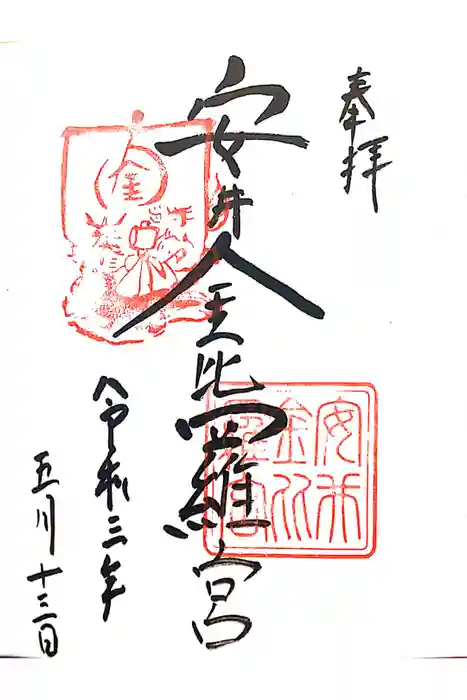 奉拝
安井金比羅宮
令和三年
五月十三日
金
安井
金比
羅宮